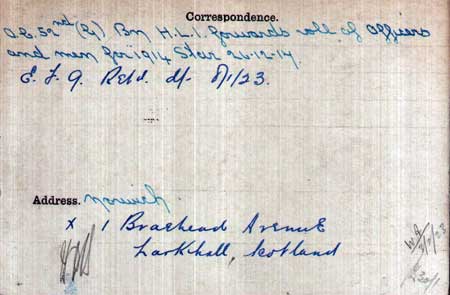 Correspondence.
O.C. 52nd (G) Bn H.L.I. forwards roll of officers
and men for 1914 Star 26-12-17.
E. F. 9. Retd. df 8/1/23.
Address. Norwich.
x 1 Braehead Avenue
Larkhall, Scotland